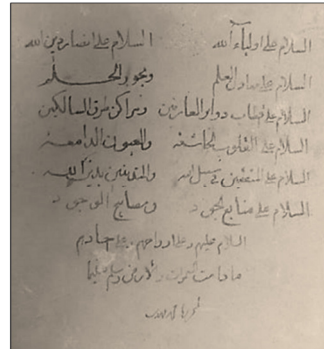 السلام على اولياء الله السلام على انصار دين الله
السلام على معادن العلم وبحور الحلم
السلام على اقطاب دوائر العارفين ومراكز طرق السالكين
السلام على القلوب الخاشعة والعيون الدامعة
السلام على المنفقين في سبيل الله
السلام على منابع الجود ومصابيح الوجود
السلام عليهم وعلى ارواحهم وعلى
ما دامت السموات والارض وسلم تسليما